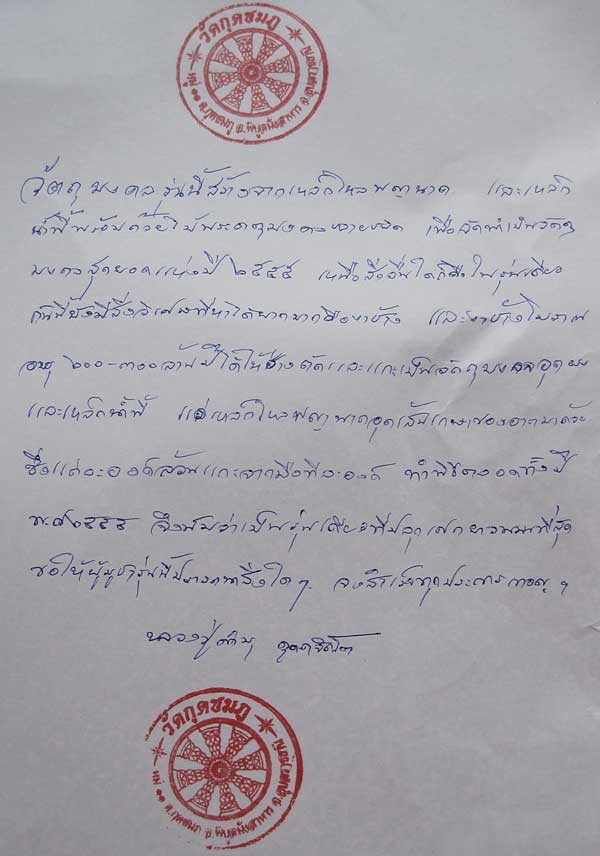 วัดกุดชมภู
หมู่ ๑๑ ต.กุดชมภู อ.พิบูลมังสาหาร จ.อุบลราชธานี
วัตถุมงคลรุ่นนี้สร้างจากเหล็กไหลพญานาค และเหล็ก
น้ำพี้พร้อมด้วย พระธาตุ เพื่อจัดทำเป็นวัตถุ
มงคลสุดยอดแห่งปี ๒๕๕๕ เหนือสิ่งอื่นใดก็คือในรุ่นเดียว
กันนี้ยังมีสิ่งวิเศษที่หาได้ยากมากคืองาช้าง และงาช้างโบราณ
อายุ ๒๐๐-๓๐๐ล้านปีได้ให้ช่างตัดและแกะเป็นวัตถุมงคล
และเหล็กน้ำพี้ แร่เหล็กไหลพญานาคอุดเส้นเกษาของอาตมาด้วย
ซึ่งแต่ละองค์ล้วนแกะจากมือทีละองค์ ทำพิธีตลอดทั้งปี
พ.ศ๒๕๕๕ จึงนับว่าเป็นรุ่นเดียวที่ปลุกเสกยาวนานที่สุด
ขอให้ผู้บูชารุ่นนี้ปรารถนาสิ่งใดๆ จงสำเร็จทุกประการ
หลวงปู่คำบุ คุตฺตจิตฺโต
วัดกุดชมภู
หมู่ ๑๑ ต.กุดชมภู อ.พิบูลมังสาหาร จ.อุบลราชธานี